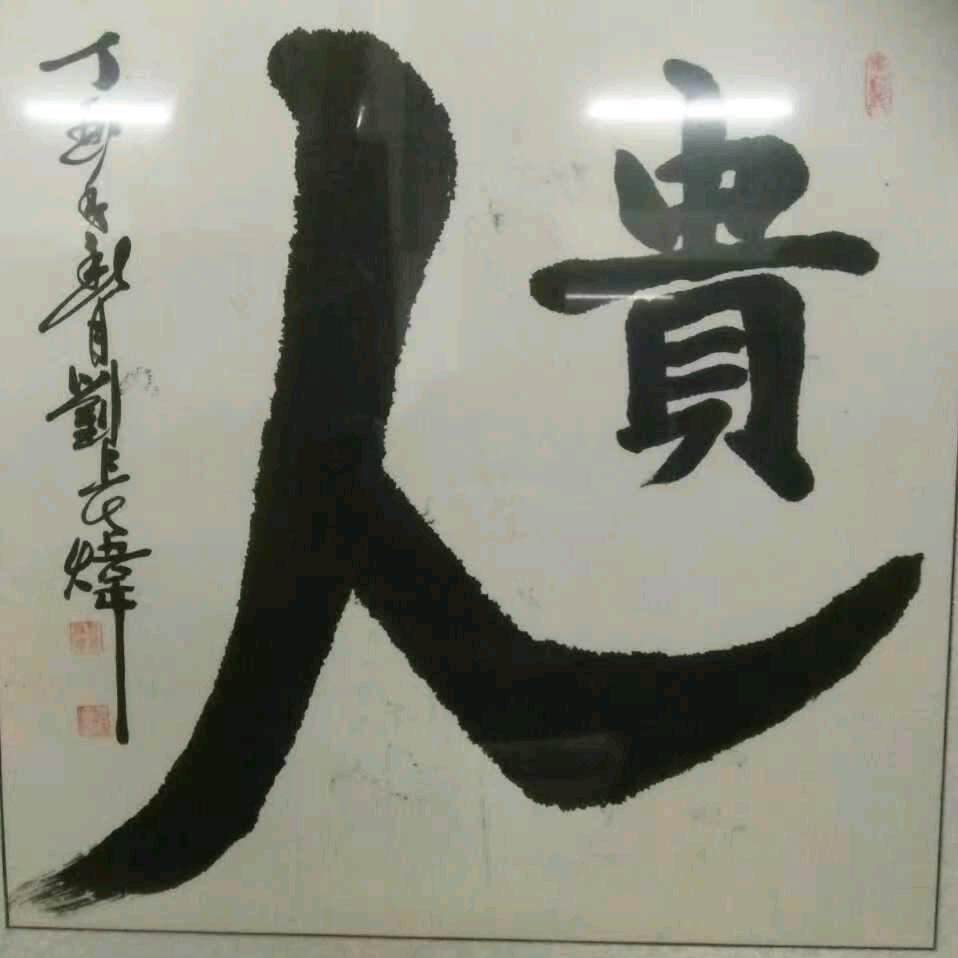 貴人
丁酉年秋月劉長煒